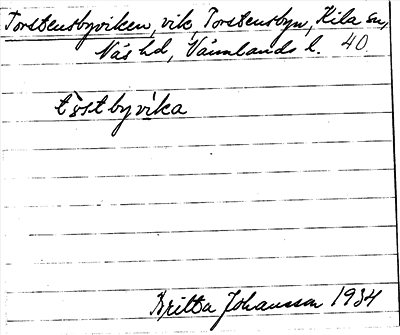 Torstensbyviken, vik, Torstensbyn, Kila sn,
Näs hd, Värmlands l. 40.
tòstbyvika
Britta Johansson 1934